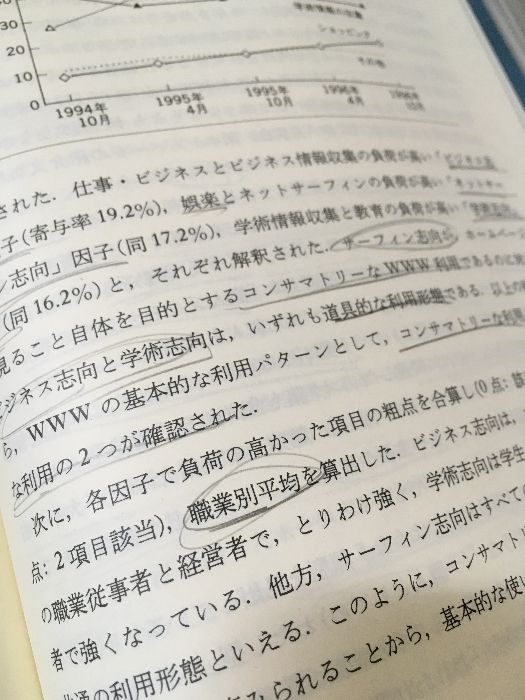 30
20
10
0
1994年
10月
1995年
4月
1995年
10月
1996年
4月
1996年
10月
学術情報の収集
ショッピング
その他
された．仕事・ビジネスとビジネス情報収集の負荷が高い「ビジネス志
子（寄与率 19.2%），娯楽とネットサーフィンの負荷が高い「ネットサー
ン志向」因子（同 17.2%），学術情報収集と教育の負荷が高い「学術志向」
（同 16.2%）と，それぞれ解釈された．サーフィン志向が，ホームページ
見ること自体を目的とするコンサマトリーなWWW利用であるのに対
ビジネス志向と学術志向は，いずれも道具的な利用形態である．以上の
ら，WWWの基本的な利用パターンとして，コンサマトリーな利用
な利用の2つが確認された．
次に，各因子で負荷の高かった項目の粗点を合算し（0点：該
点：2項目該当），職業別平均を算出した．ビジネス志向は，
の職業従事者と経営者で，とりわけ強く，学術志向は学生
者で強くなっている．他方，サーフィン志向はすべての
共通の利用形態といえる．このように，コンサマト
みられることから，基本的な使